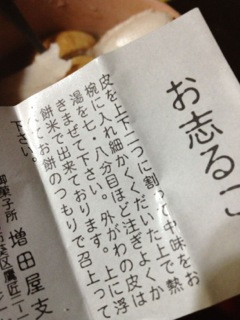 お志るこ
皮を上下二つに割って中味をお
椀に入れ細かくくだいた上で熱
湯を七、八分目ほど注ぎよくか
きまぜて下さい。外がわの皮は
餅米で出来ております。上に浮
いてお餅のつもりで召上って
下さい。
御菓子所
増田屋支